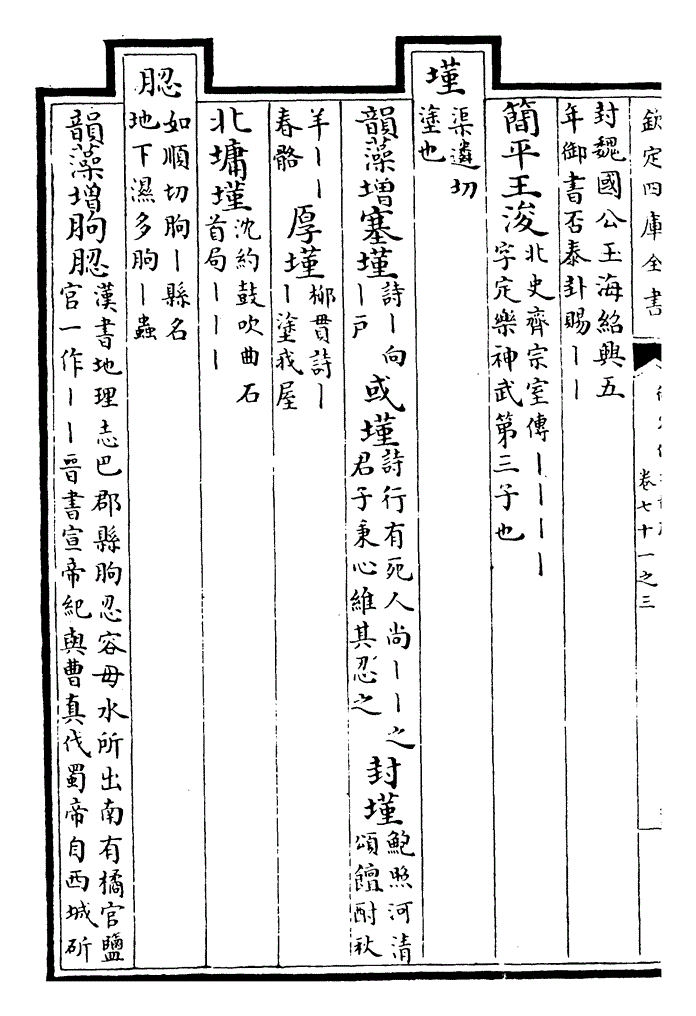 欽定四庫全書
卷七十一之三
封魏國公玉海紹興五
年御書否泰卦賜丨丨
簡平王浚
北史齊宗室傳丨丨丨丨
字定樂神武第三子也
墐
渠遴切
塗也
韻藻增塞墐
詩丨向
丨戶
或墐
詩行有死人尚丨丨之
君子秉心維其忍之
封墐
鮑照河清
頌饘酎秋
羊丨丨
春骼
厚墐
柳貫詩丨
丨塗我屋
北墉墐
沈約鼓吹曲石
首局丨丨丨
䏰
如順切朐丨縣名
地下濕多朐丨蟲
韻藻增朐䏰
漢書地理志巴郡縣朐忍容毋水所出南有橘官鹽
官一作丨丨晉書宣帝紀與曹真伐蜀帝自西城斫